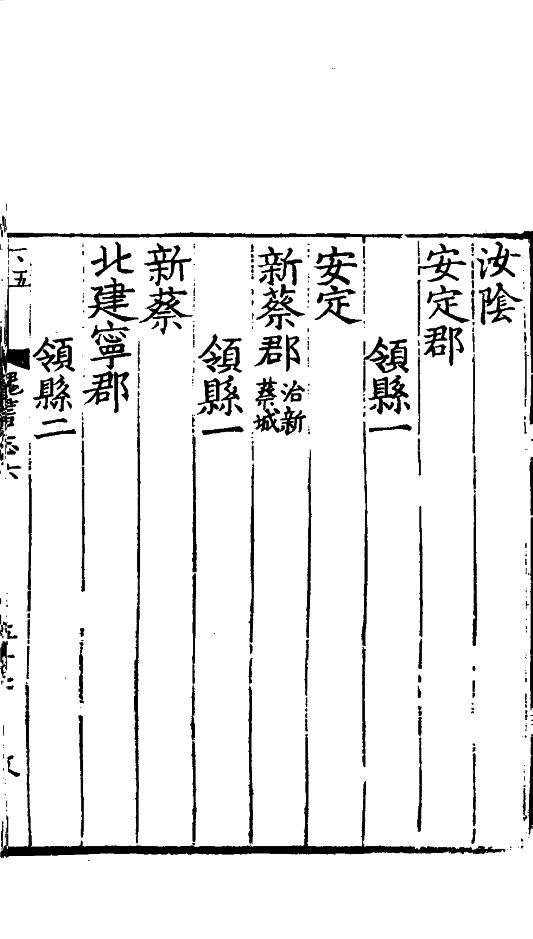 汝陰
安定郡
領縣一
安定
新蔡郡治新蔡城
領縣一
新蔡
北建寧郡
領縣二